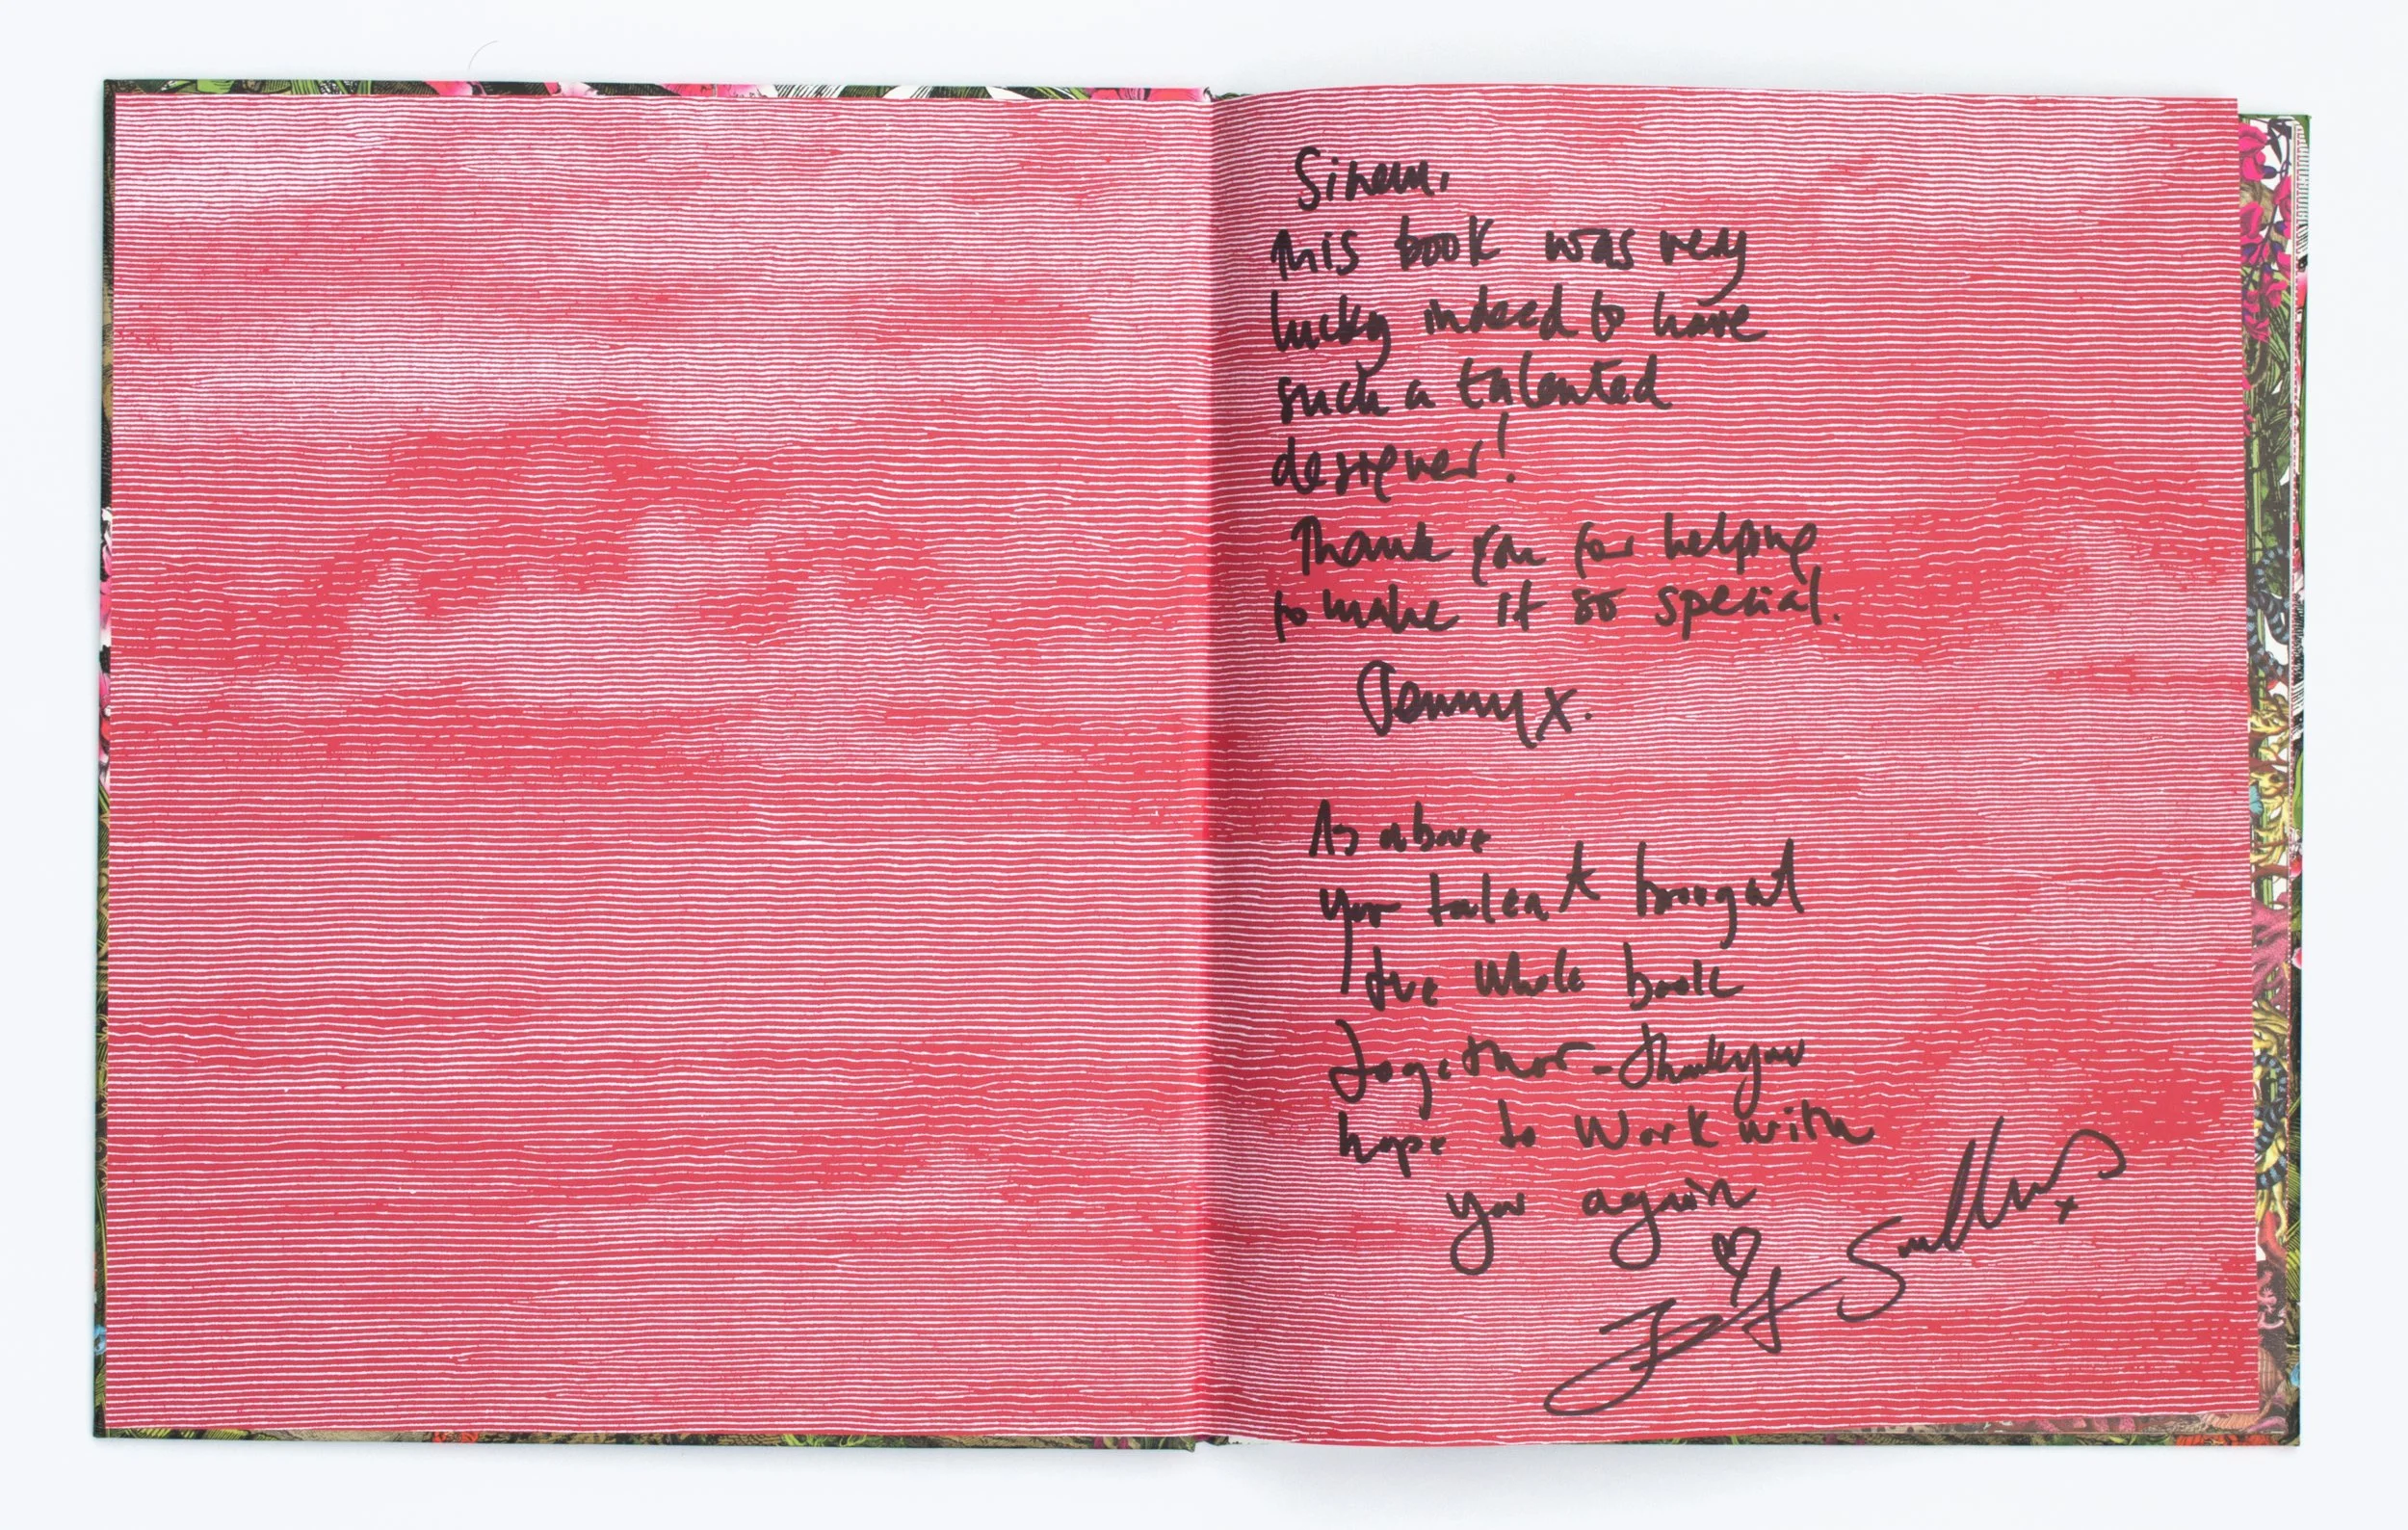 Sinem,
This book was very
lucky indeed to have
such a talented
designer!
Thank you for helping
to make it so special.
Jenny x.
As above
your talent brought
the whole book
together - thankyou
hope to work with
you again